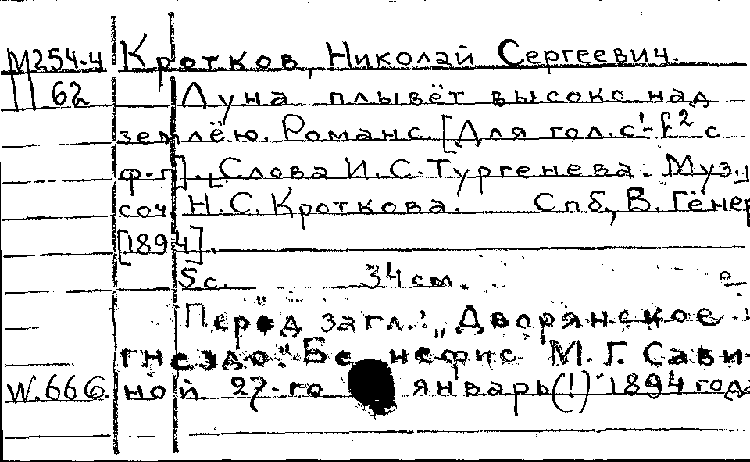 М254-4 Кротков, Николай Сергеевич.
11 62 Луна плывёт высоко над
землёю. Романс. [Для гол. c¹-f² с
ф-п]. Слова И.С. Тургенева. Муз.
соч. Н.С. Кроткова. Спб, В. Гёнер
[1894].
5с. 34 см.
Перед загл.: „Дворянское
гнездо." Бенефис М. Г. Сави-
W.666. ной 27-го январь(!) 1894 года